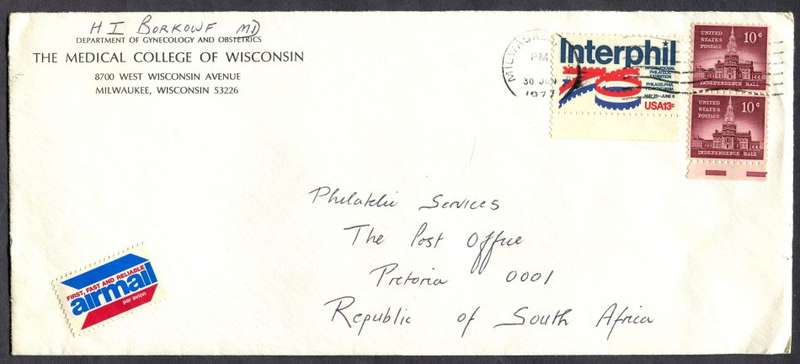 H I BORKOWF MD
DEPARTMENT OF GYNECOLOGY AND OBSTETRICS
THE MEDICAL COLLEGE OF WISCONSIN
8700 WEST WISCONSIN AVENUE
MILWAUKEE, WISCONSIN 53226
PM
30 JUN
1977
Interphil
76
INTERNATIONAL
PHILATELIC
EXHIBITION
PHILADELPHIA
PENNSYLVANIA
MAY 29-JUNE 6
USA13c
UNITED
STATES
POSTAGE
10¢
INDEPENDENCE HALL
UNITED
STATES
POSTAGE
10¢
INDEPENDENCE HALL
Philatelic Services
The Post Office
Pretoria 0001
Republic of South Africa
FIRST, FAST AND RELIABLE
airmail